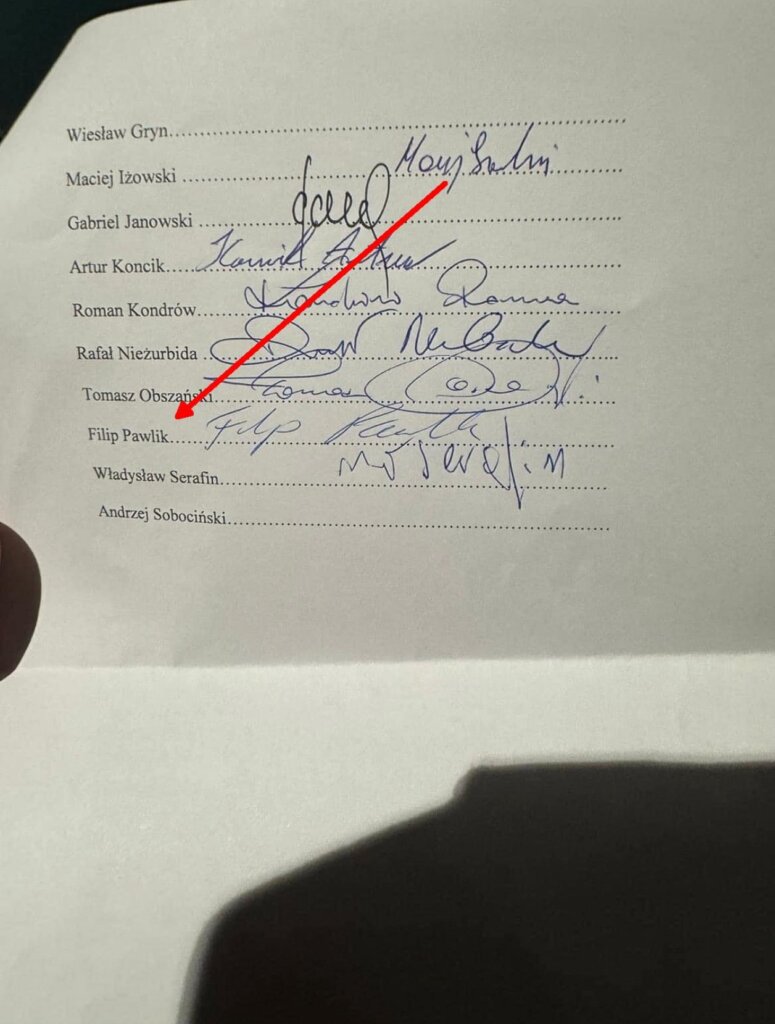 Wiesław Gryn
Maciej Iżowski
Gabriel Janowski
Artur Koncik Koncik Artur
Roman Kondrów Kondrów Roman
Rafał Nieżurbida
Tomasz Obszański Tomasz
Filip Pawlik Filip Pawlik
Władysław Serafin Serafin
Andrzej Sobociński